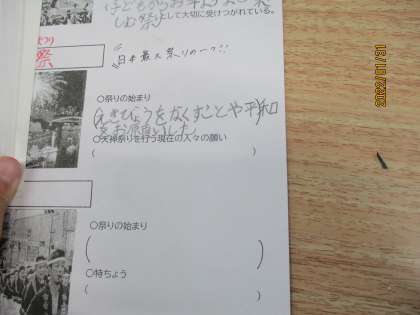 子どもからお年よりまで楽
しむ祭りとして大切に受けつがれている。
まつり
祭
"日本最大祭りの一つ!!
○祭りの始まり
(えきびょうをなくすことや平和
をお願いした
○天神祭りを行う現在の人々の願い
( )
○祭りの始まり
( )
○特ちょう
( )
2023/01/31